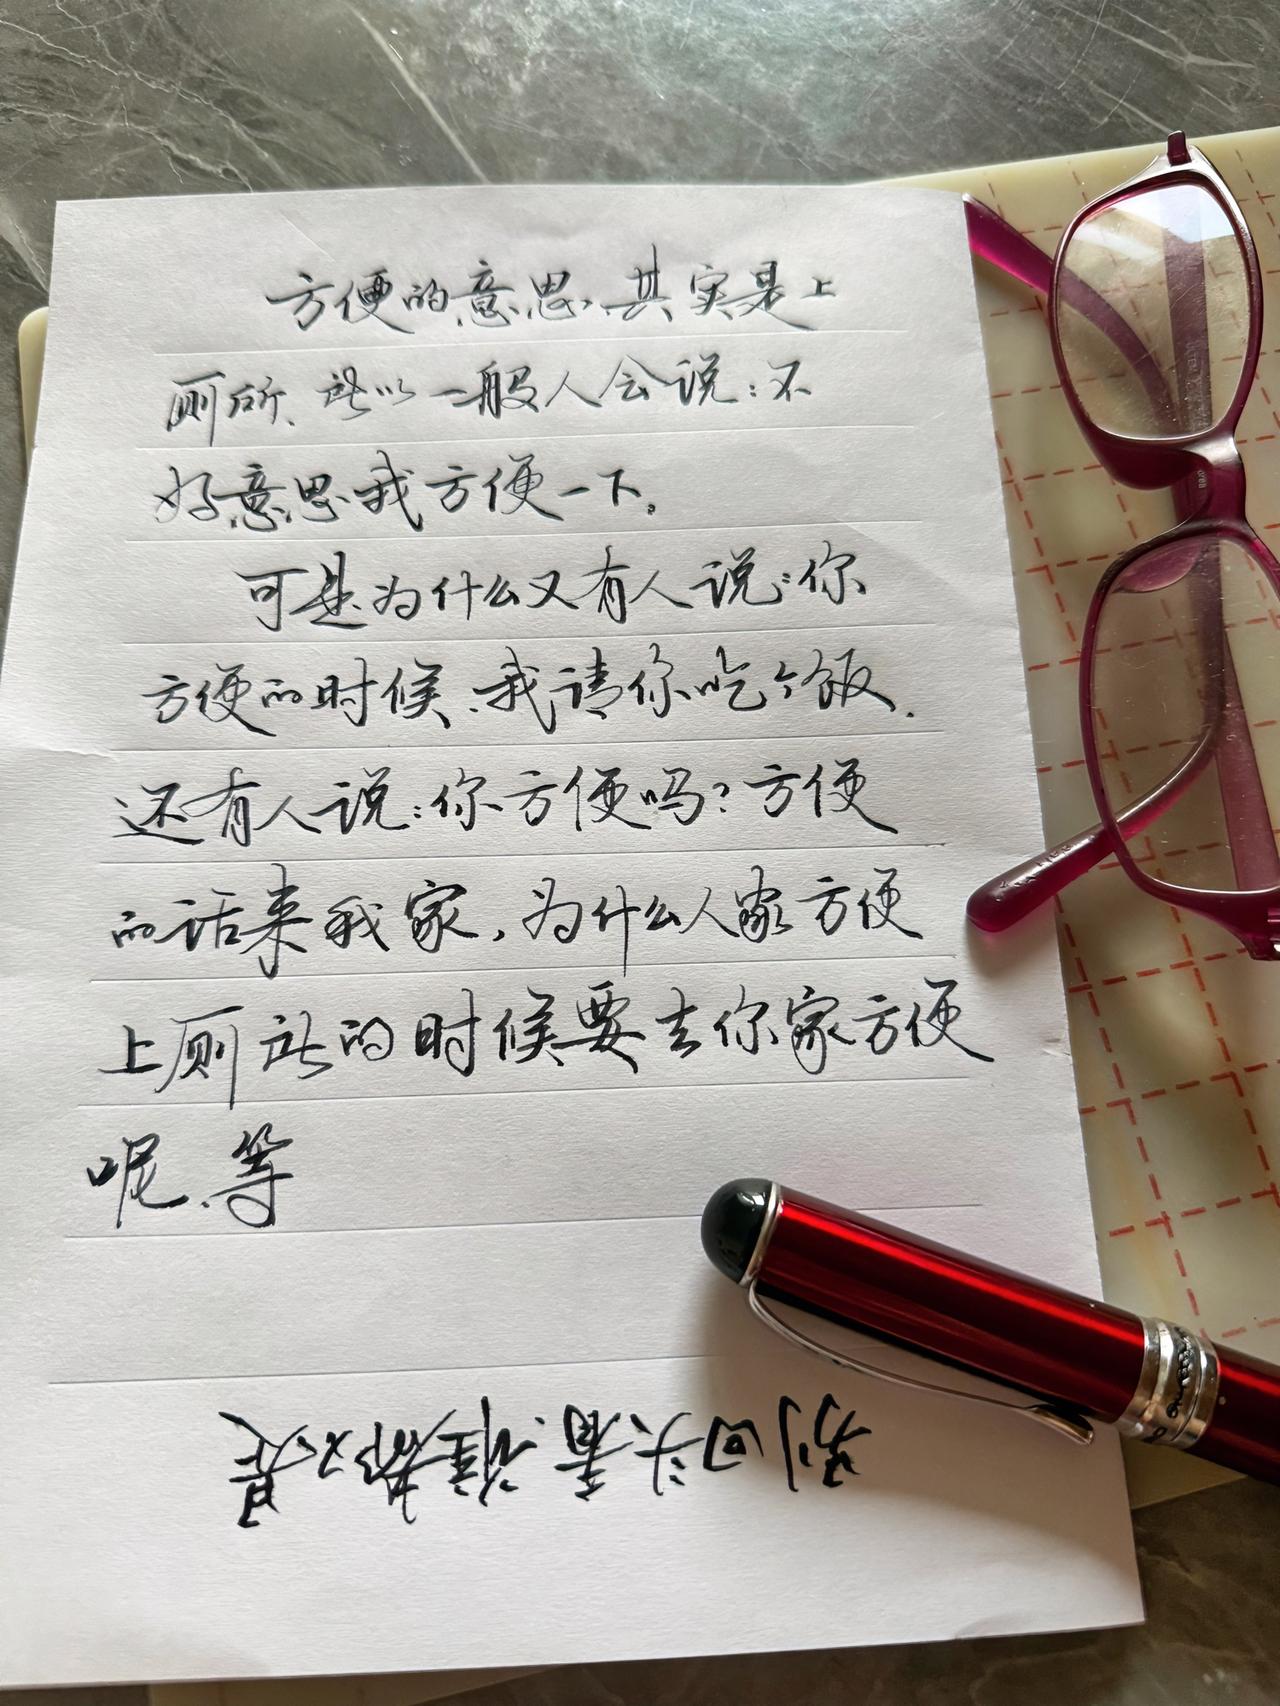 方便的意思、其实是上
厕所、所以一般人会说：不
好意思我方便一下。
可是为什么又有人说：你
方便的时候、我请你吃个饭.
还有人说：你方便吗？方便
的话来我家，为什么人家方便
上厕所的时候要去你家方便
呢、等
别回头看、谁都不是